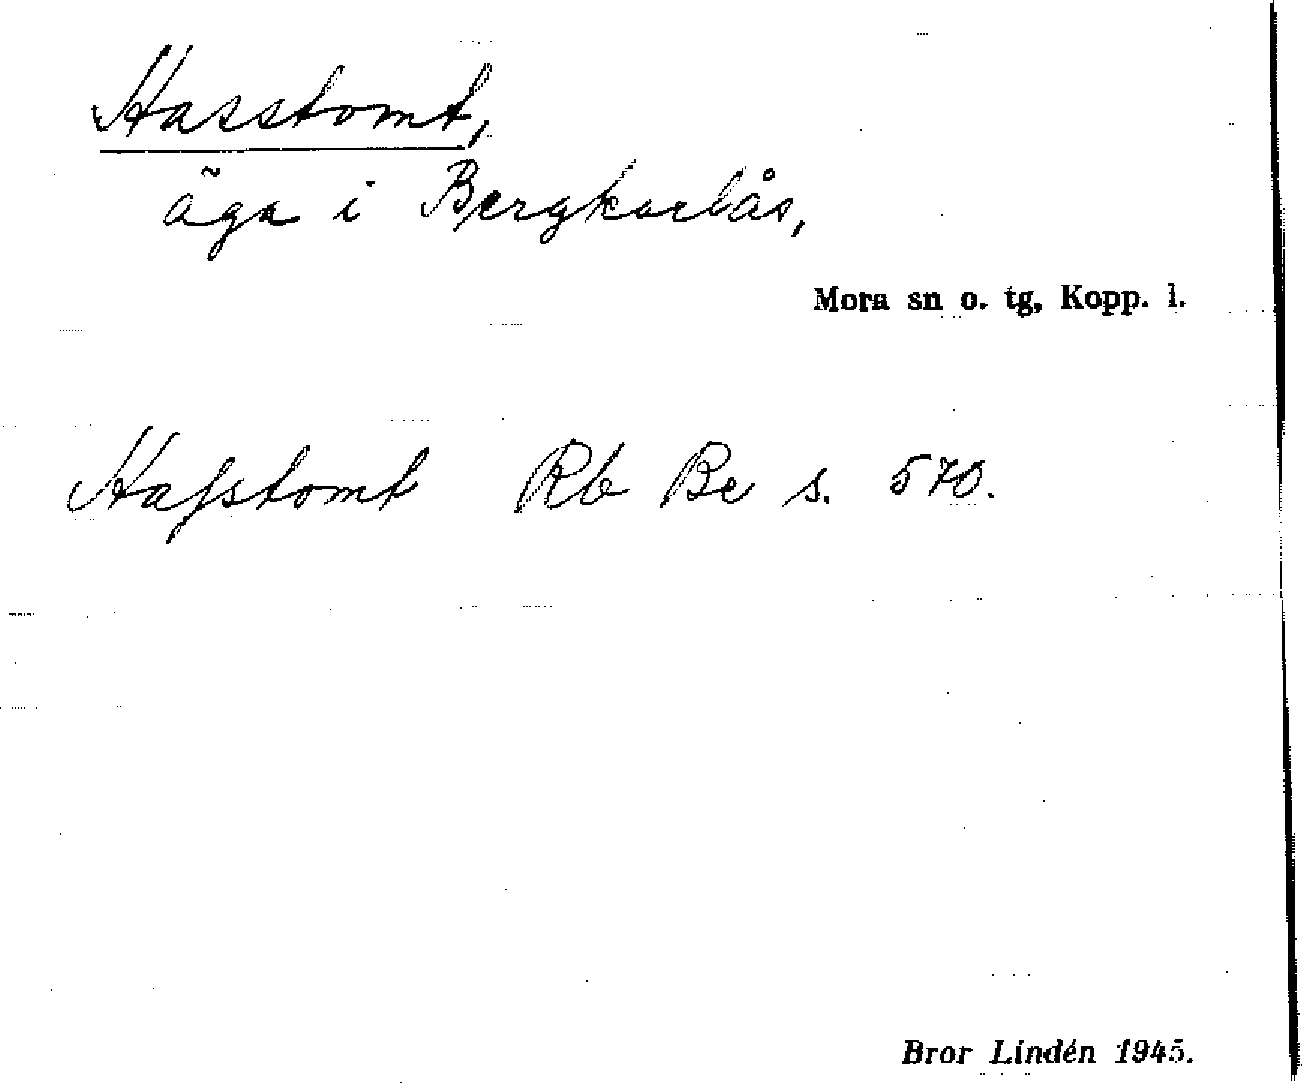 Hasstomt,
äga i Bergkarlås,
Mora sn o. tg, Kopp. l.
Haſstomt Rb Be s. 570.
Bror Lindén 1945.